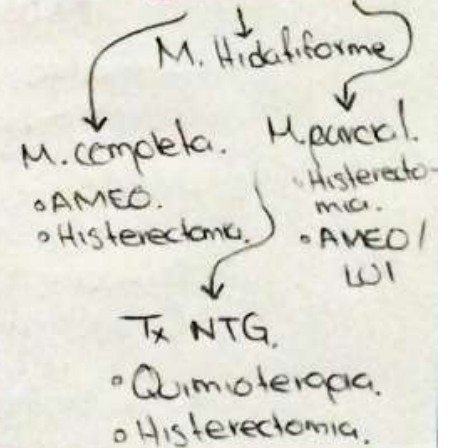 M. Hidatiforme
M. completa.
• AMEO.
• Histerectomia.
M. parcial.
• Histerecto-
mia.
• AMEO /
LUI
Tx NTG.
• Quimioterapia.
• Histerectomia.